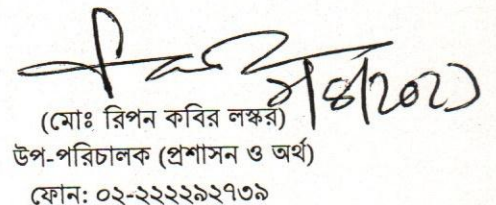 (মোঃ রিপন কবির লস্কর)
উপ-পরিচালক (প্রশাসন ও অর্থ)
ফোন: ০২-২২২২৯২৭৩৯